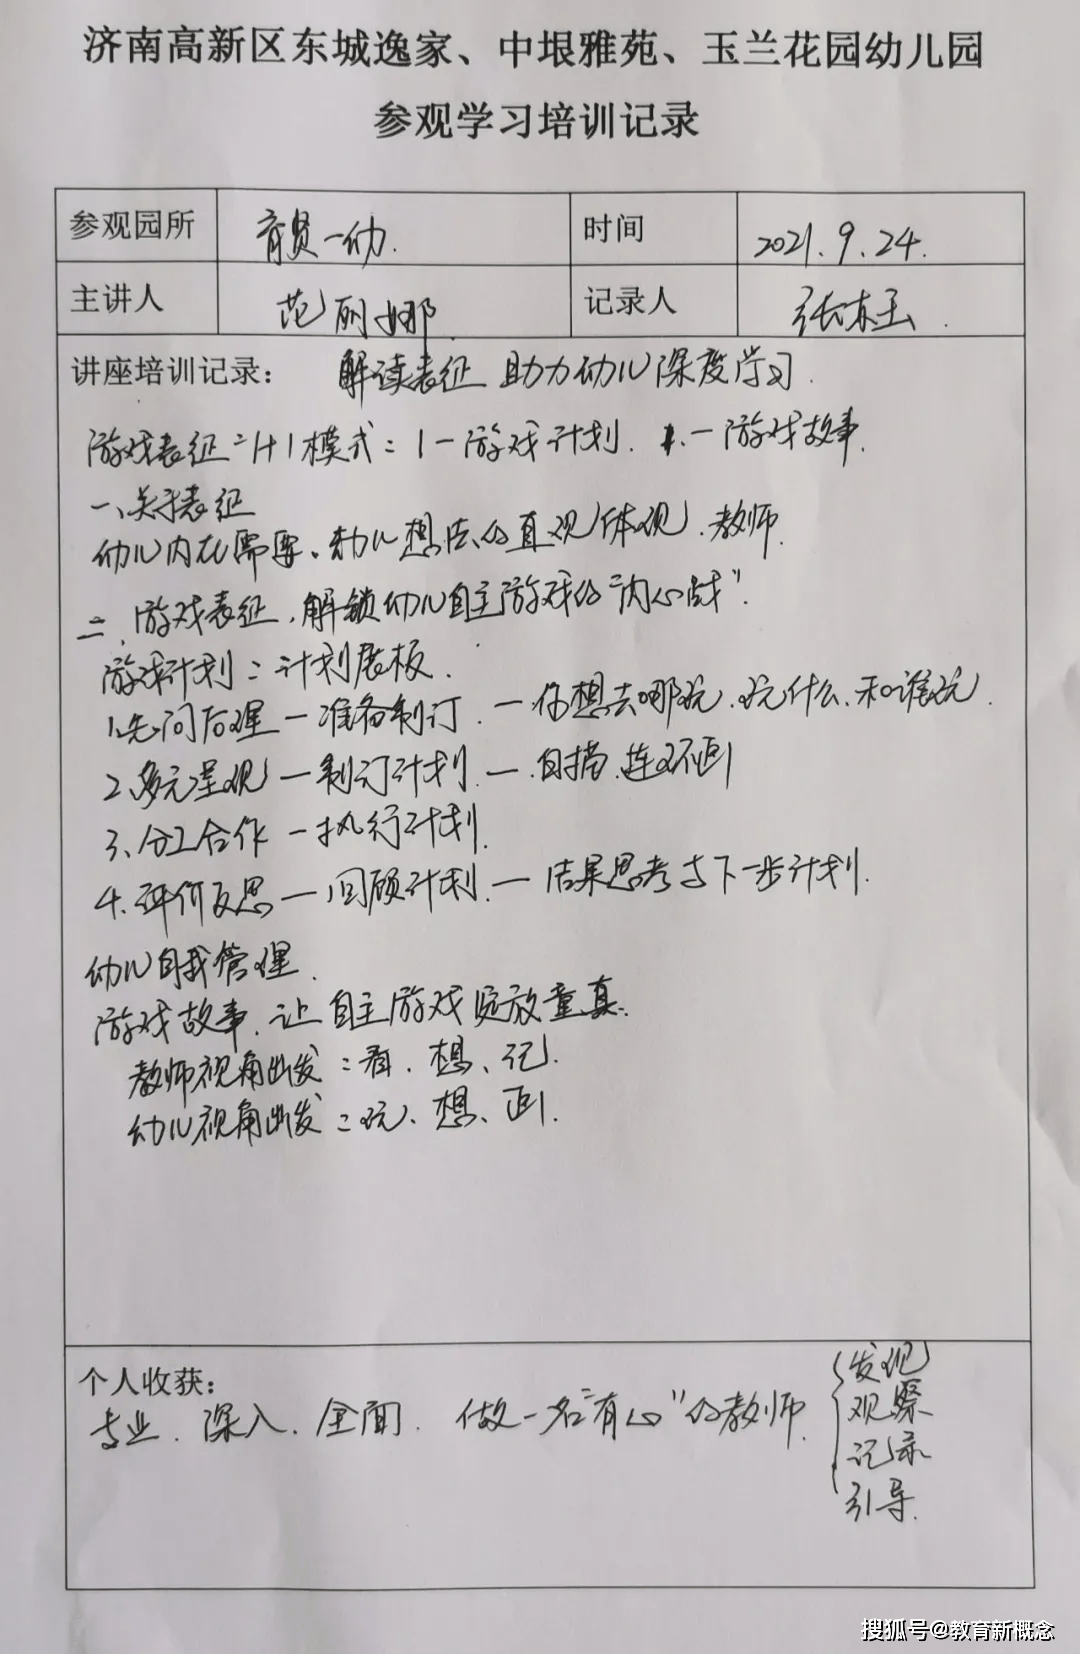 济南高新区东城逸家、中垠雅苑、玉兰花园幼儿园
参观学习培训记录
参观园所 育贤一幼. 时间 2021.9.24.
主讲人 范丽娜 记录人 张栋玉.
讲座培训记录: 解读表征 助力幼儿深度学习.
游戏表征:1+1模式:1—游戏计划. 1.—游戏故事.
一、关于表征
幼儿内在需要、幼儿想法的直观体现、教师.
二、游戏表征,解锁幼儿自主游戏的"内心戏".
游戏计划:计划展板.
1.先问后理—准备制订.—你想去哪玩、玩什么、和谁玩.
2.多元呈现—制订计划.—自描、连环画
3、分工合作—执行计划.
4.评价反思—回顾计划.—结果思考与下一步计划.
幼儿自我管理.
游戏故事.让自主游戏绽放童真.
教师视角出发:看、想、记.
幼儿视角出发:玩、想、画.
个人收获:
专业、深入、全面. 做一名"有心"的教师.
发现
观察
记录
引导.
搜狐号@教育新概念